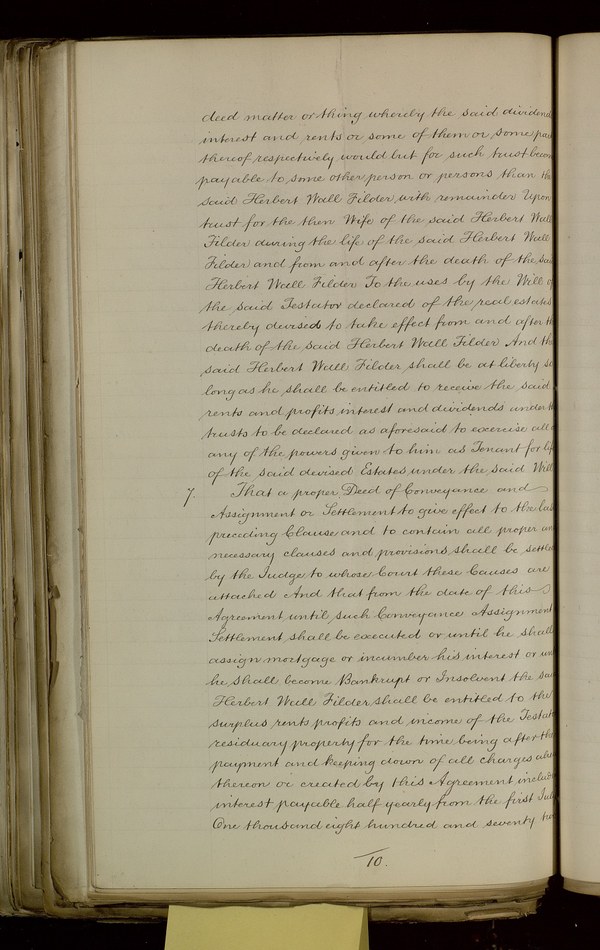 deed matter or thing whereby the said dividend
interest and rents or some of them or some pa
thereof respectively would but for such trust becom
payable to some other person or persons than th
said Herbert Wall Filder with remainder Upon
trust for the then Wife of the said Herbert Wall
Filder during the life of the said Herbert Wall
Filder and from and after the death of the sai
Herbert Wall Filder To the uses by the Will of
the said Testator declared of the real estates
thereby devised to take effect from and after th
death of the said Herbert Wall Filder And th
said Herbert Wall Filder shall be at liberty so
long as he shall be entitled to receive the said
rents and profits interest and dividends under th
trusts to be declared as aforesaid to exercise all o
any of the powers given to him as Tenant for lif
of the said devised Estates under the said Will
7. That a proper Deed of Conveyance and
Assignment or Settlement to give effect to the las
preceding Clause and to contain all proper an
necessary clauses and provisions shall be settle
by the Judge to whose Court these Causes are
attached And that from the date of this
Agreement until such Conveyance Assignment
Settlement shall be executed or until he shall
assign mortgage or incumber his interest or un
he shall become Bankrupt or Insolvent the sai
Herbert Wall Filder shall be entitled to the
surplus rents profits and income of the Testato
residuary property for the time being after the
payment and keeping down of all charges
thereon or created by this Agreement includi
interest payable half yearly from the first July
One thousand eight hundred and seventy
10.